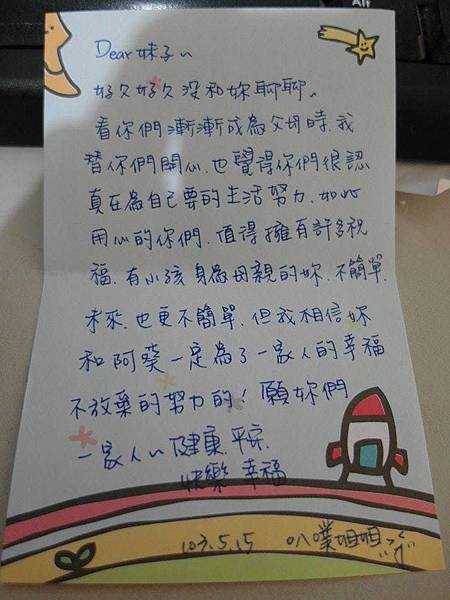 Dear 妹子~
好久好久沒和妳聊聊~
看你們漸漸成為父母時.我
替你們開心.也覺得你們很認
真在為自己要的生活努力.如此
用心的你們.值得擁有許多祝
福.有小孩身為母親的妳.不簡單.
未來.也更不簡單.但我相信妳
和阿葵一定為了一家人的幸福
不放棄的努力的!願妳們
一家人~健康.平安.
快樂 幸福
103.5.15 叭噗姐姐